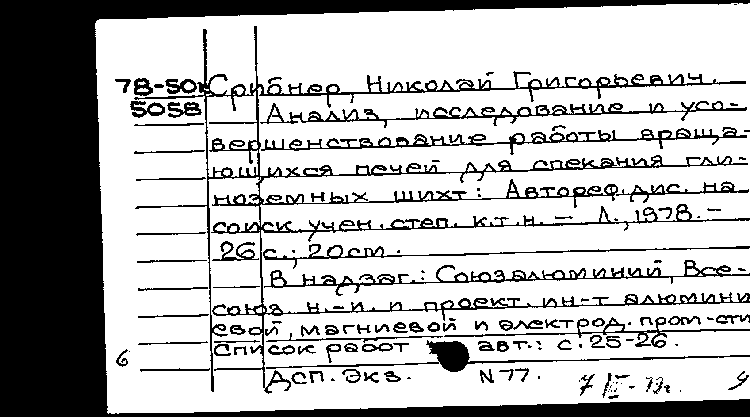 78-50к Срибнер, Николай Григорьевич.
5058 Анализ, исследование и усо-
вершенствование работы враща-
ющихся печей для спекания гли-
ноземных шихт: Автореф. дис. на
соиск. учен. степ. к.т.н. – Л., 1978. –
26 с.; 20 см.
В надзаг.: Союзалюминий, Все-
союз. н.-и. и проект. ин-т алюмини
евой, магниевой и электрод. пром-сти
Список работ авт.: с. 25-26.
6
ДСП. Экз. N 77.